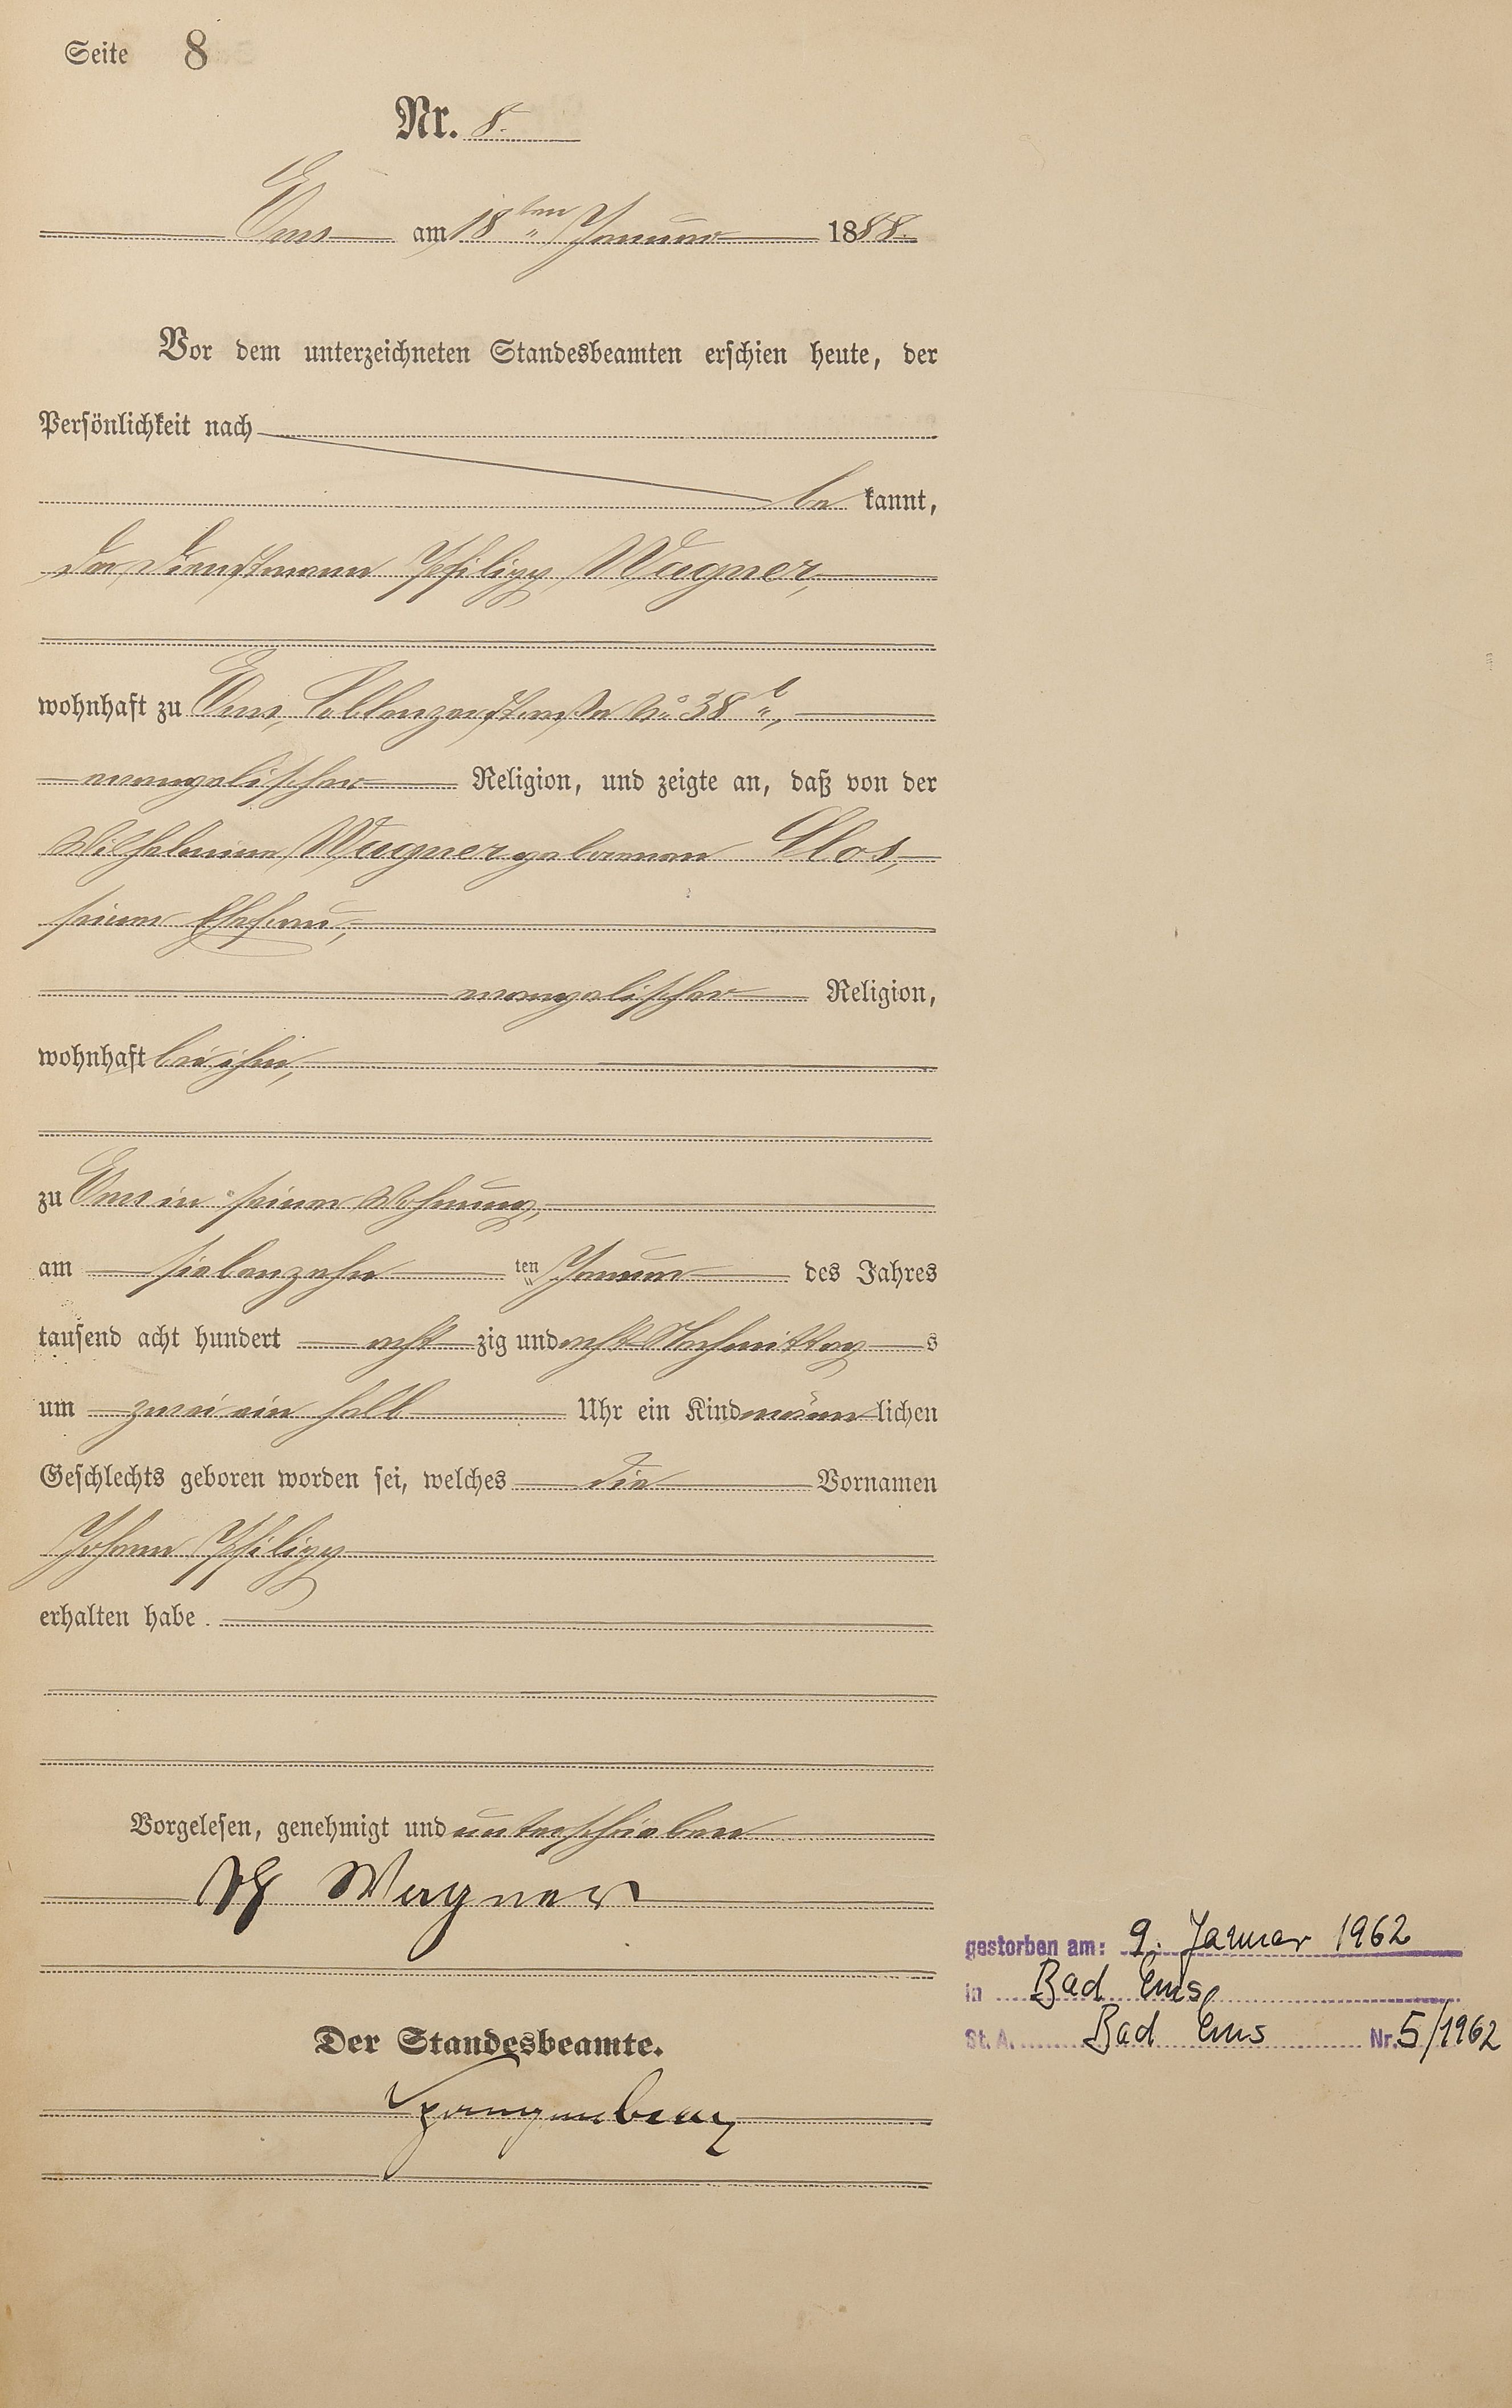 Seite 8
Nr. 8.
Ems am 18ten Januar 1888.
Vor dem unterzeichneten Standesbeamten erschien heute, der
Persönlichkeit nach
be kannt,
der Dienstmann Philipp Wagner,
wohnhaft zu Ems, Coblenzerstraße No 38 b,
evangelischer Religion, und zeigte an, daß von der
Wilhelmine Wagner geborenen Clos,
seiner Ehefrau,
evangelischer Religion,
wohnhaft bei ihm,
zu Ems in seiner Wohnung,
am siebenzehn ten Januar des Jahres
tausend acht hundert acht zig und acht Nachmittag s
um zwei ein halb Uhr ein Kind männ lichen
Geschlechts geboren worden sei, welches die Vornamen
Johann Philipp
erhalten habe.
Vorgelesen, genehmigt und unterschrieben
Ph Wagner
Der Standesbeamte.
Spangenberg
gestorben am: 9. Januar 1962
in Bad Ems
St. A. Bad Ems Nr. 5/1962